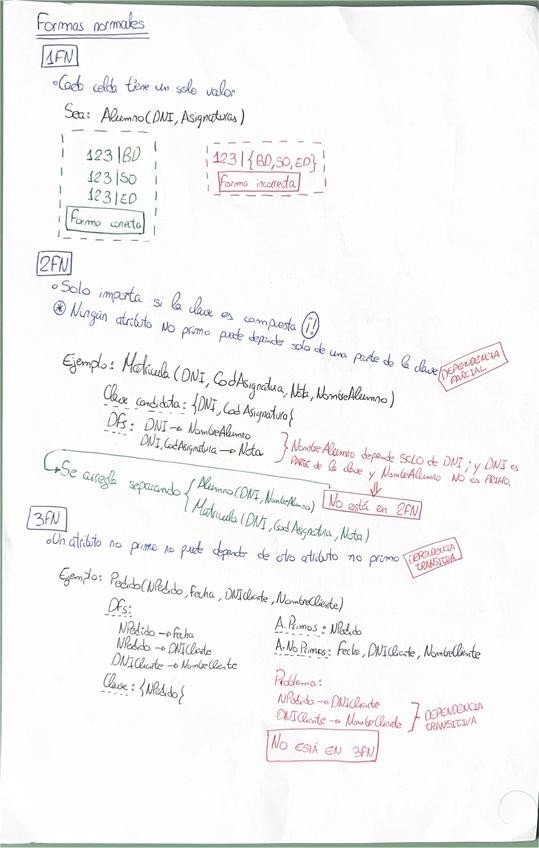 Formas normales
1FN
• Cada celda tiene un solo valor
Sea: Alumno(DNI, Asignaturas)
123|BD
123|SO
123|ED
Forma correcta
123|{BD,SO,ED}
Forma incorrecta
2FN
• Solo importa si la clave es compuesta (¡!)
⊛ Ningún atributo NO primo puede depender solo de una parte de la clave
DEPENDENCIA
PARCIAL
Ejemplo: Matricula(DNI, CodAsignatura, Nota, NombreAlumno)
Clave candidata: {DNI, CodAsignatura}
Dfs: DNI → NombreAlumno
DNI, CodAsignatura → Nota
NombreAlumno depende SOLO de DNI; y DNI es
PARTE de la clave y NombreAlumno NO es PRIMO.
No está en 2FN
Se arregla separando { Alumno(DNI, NombreAlumno)
Matricula(DNI, CodAsignatura, Nota)
3FN
• Un atributo no primo no puede depender de otro atributo no primo
DEPENDENCIA
TRANSITIVA
Ejemplo: Pedido(NPedido, Fecha, DNICliente, NombreCliente)
Dfs:
NPedido → Fecha
NPedido → DNICliente
DNICliente → NombreCliente
Clave: {NPedido}
A.Primos: NPedido
A.NoPrimos: Fecha, DNICliente, NombreCliente
Problema:
NPedido → DNICliente
DNICliente → NombreCliente
DEPENDENCIA
TRANSITIVA
NO ESTÁ EN 3FN